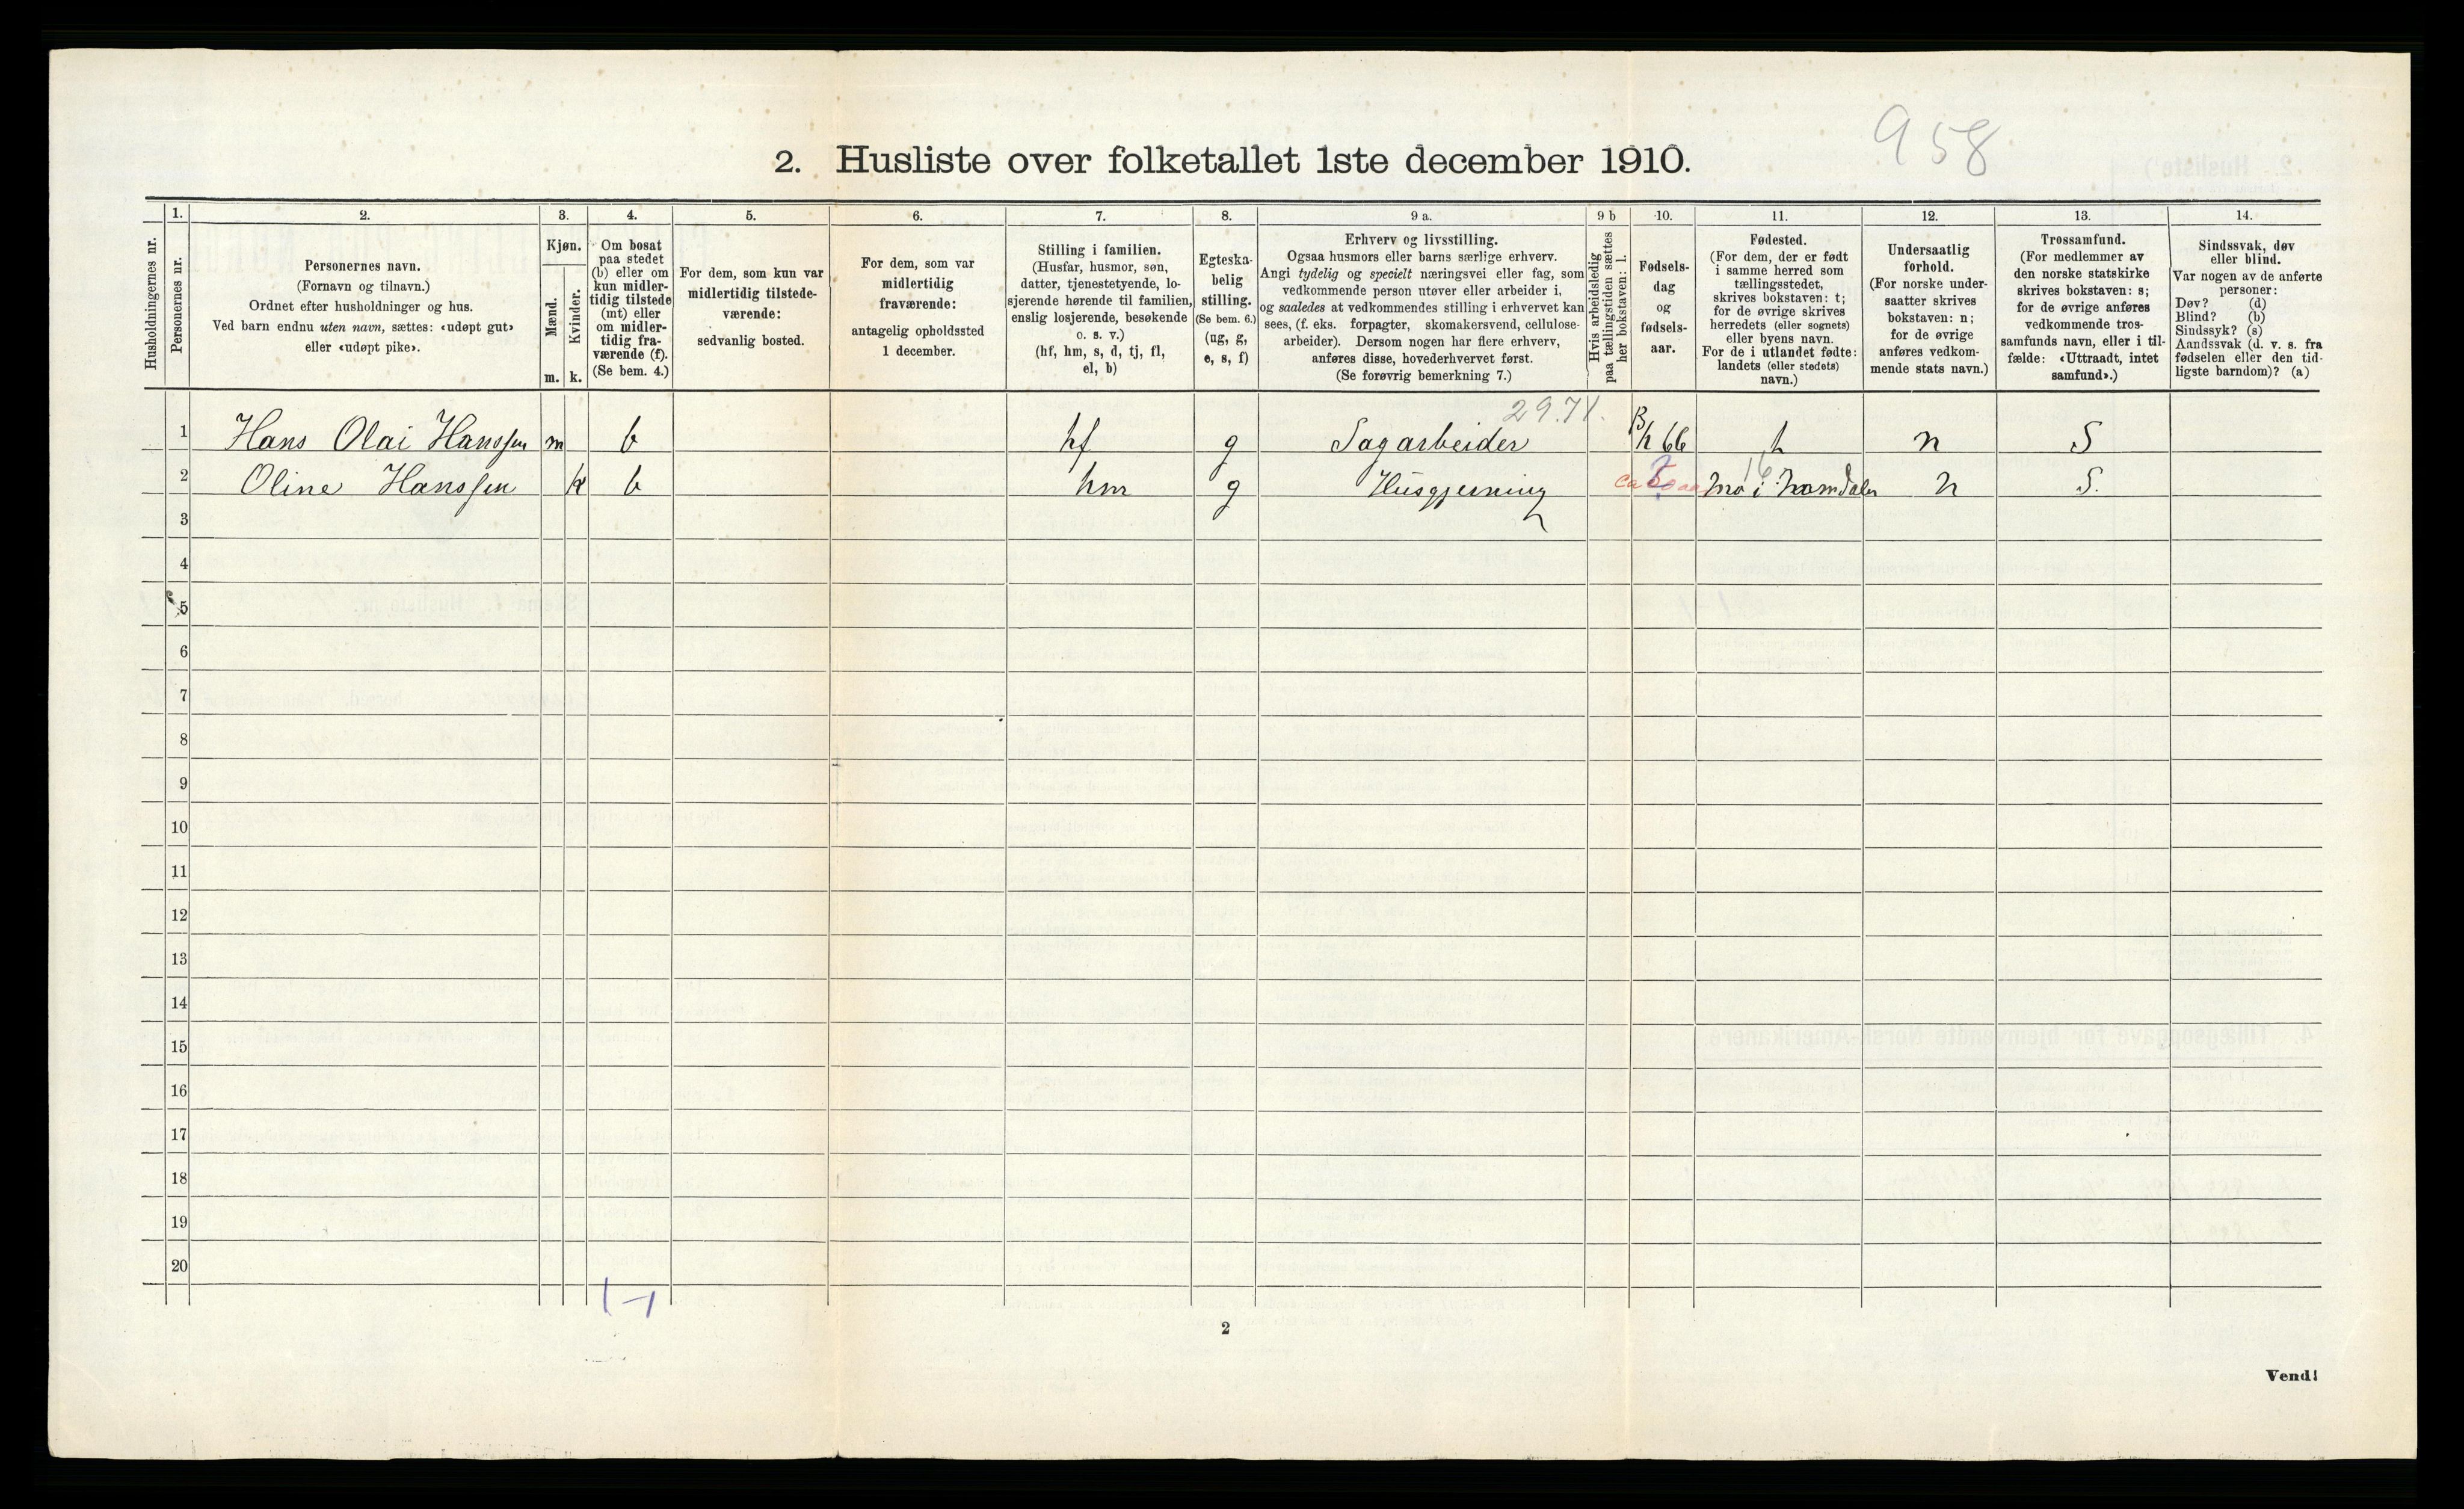 958
2. Husliste over folketallet 1ste december 1910.
Husholdningernes nr.
1.
Personernes nr.
2.
Personernes navn.
(Fornavn og tilnavn.)
Ordnet efter husholdninger og hus.
Ved barn endnu uten navn, sættes: «udøpt gut»
eller «udøpt pike».
3.
Kjøn.
Mænd.
Kvinder.
m. k.
4.
Om bosat
paa stedet
(b) eller om
kun midler-
tidig tilstede
(mt) eller
om midler-
tidig fra-
værende (f).
(Se bem. 4.)
5.
For dem, som kun var
midlertidig tilstede-
værende:
sedvanlig bosted.
6.
For dem, som var
midlertidig
fraværende:
antagelig opholdssted
1 december.
7.
Stilling i familien.
(Husfar, husmor, søn,
datter, tjenestetyende, lo-
sjerende hørende til familien,
enslig losjerende, besøkende
o. s. v.)
(hf, hm, s, d, tj, fl,
el, b)
8.
Egteska-
belig
stilling.
(Se bem. 6.)
(ug, g,
e, s, f)
9 a.
Erhverv og livsstilling.
Ogsaa husmors eller barns særlige erhverv.
Angi tydelig og specielt næringsvei eller fag, som
vedkommende person utøver eller arbeider i,
og saaledes at vedkommendes stilling i erhvervet kan
sees, (f. eks. forpagter, skomakersvend, cellulose-
arbeider). Dersom nogen har flere erhverv,
anføres disse, hovederhvervet først.
(Se forøvrig bemerkning 7.)
9 b
Hvis arbeidsledig
paa tællingstiden sættes
her bokstaven: l.
10.
Fødsels-
dag
og
fødsels-
aar.
11.
Fødested.
(For dem, der er født
i samme herred som
tællingsstedet,
skrives bokstaven: t;
for de øvrige skrives
herredets (eller sognets)
eller byens navn.
For de i utlandet fødte:
landets (eller stedets)
navn.)
12.
Undersaatlig
forhold.
(For norske under-
saatter skrives
bokstaven: n;
for de øvrige
anføres vedkom-
mende stats navn.)
13.
Trossamfund.
(For medlemmer av
den norske statskirke
skrives bokstaven: s;
for de øvrige anføres
vedkommende tros-
samfunds navn, eller i til-
fælde: «Uttraadt, intet
samfund».)
14.
Sindssvak, døv
eller blind.
Var nogen av de anførte
personer:
Døv? (d)
Blind? (b)
Sindssyk? (s)
Aandssvak (d. v. s. fra
fødselen eller den tid-
ligste barndom)? (a)
29.71.
1 Hans Olai Hanssen m b hf g Sagarbeider 66 t n S
16
2 Oline Hanssen k b hm g Husgjerning ca ? Mo i Namdalen n S.
3
4
5
6
7
8
9
10
11
12
13
14
15
16
17
18
19
20
1-1
2
Vend!